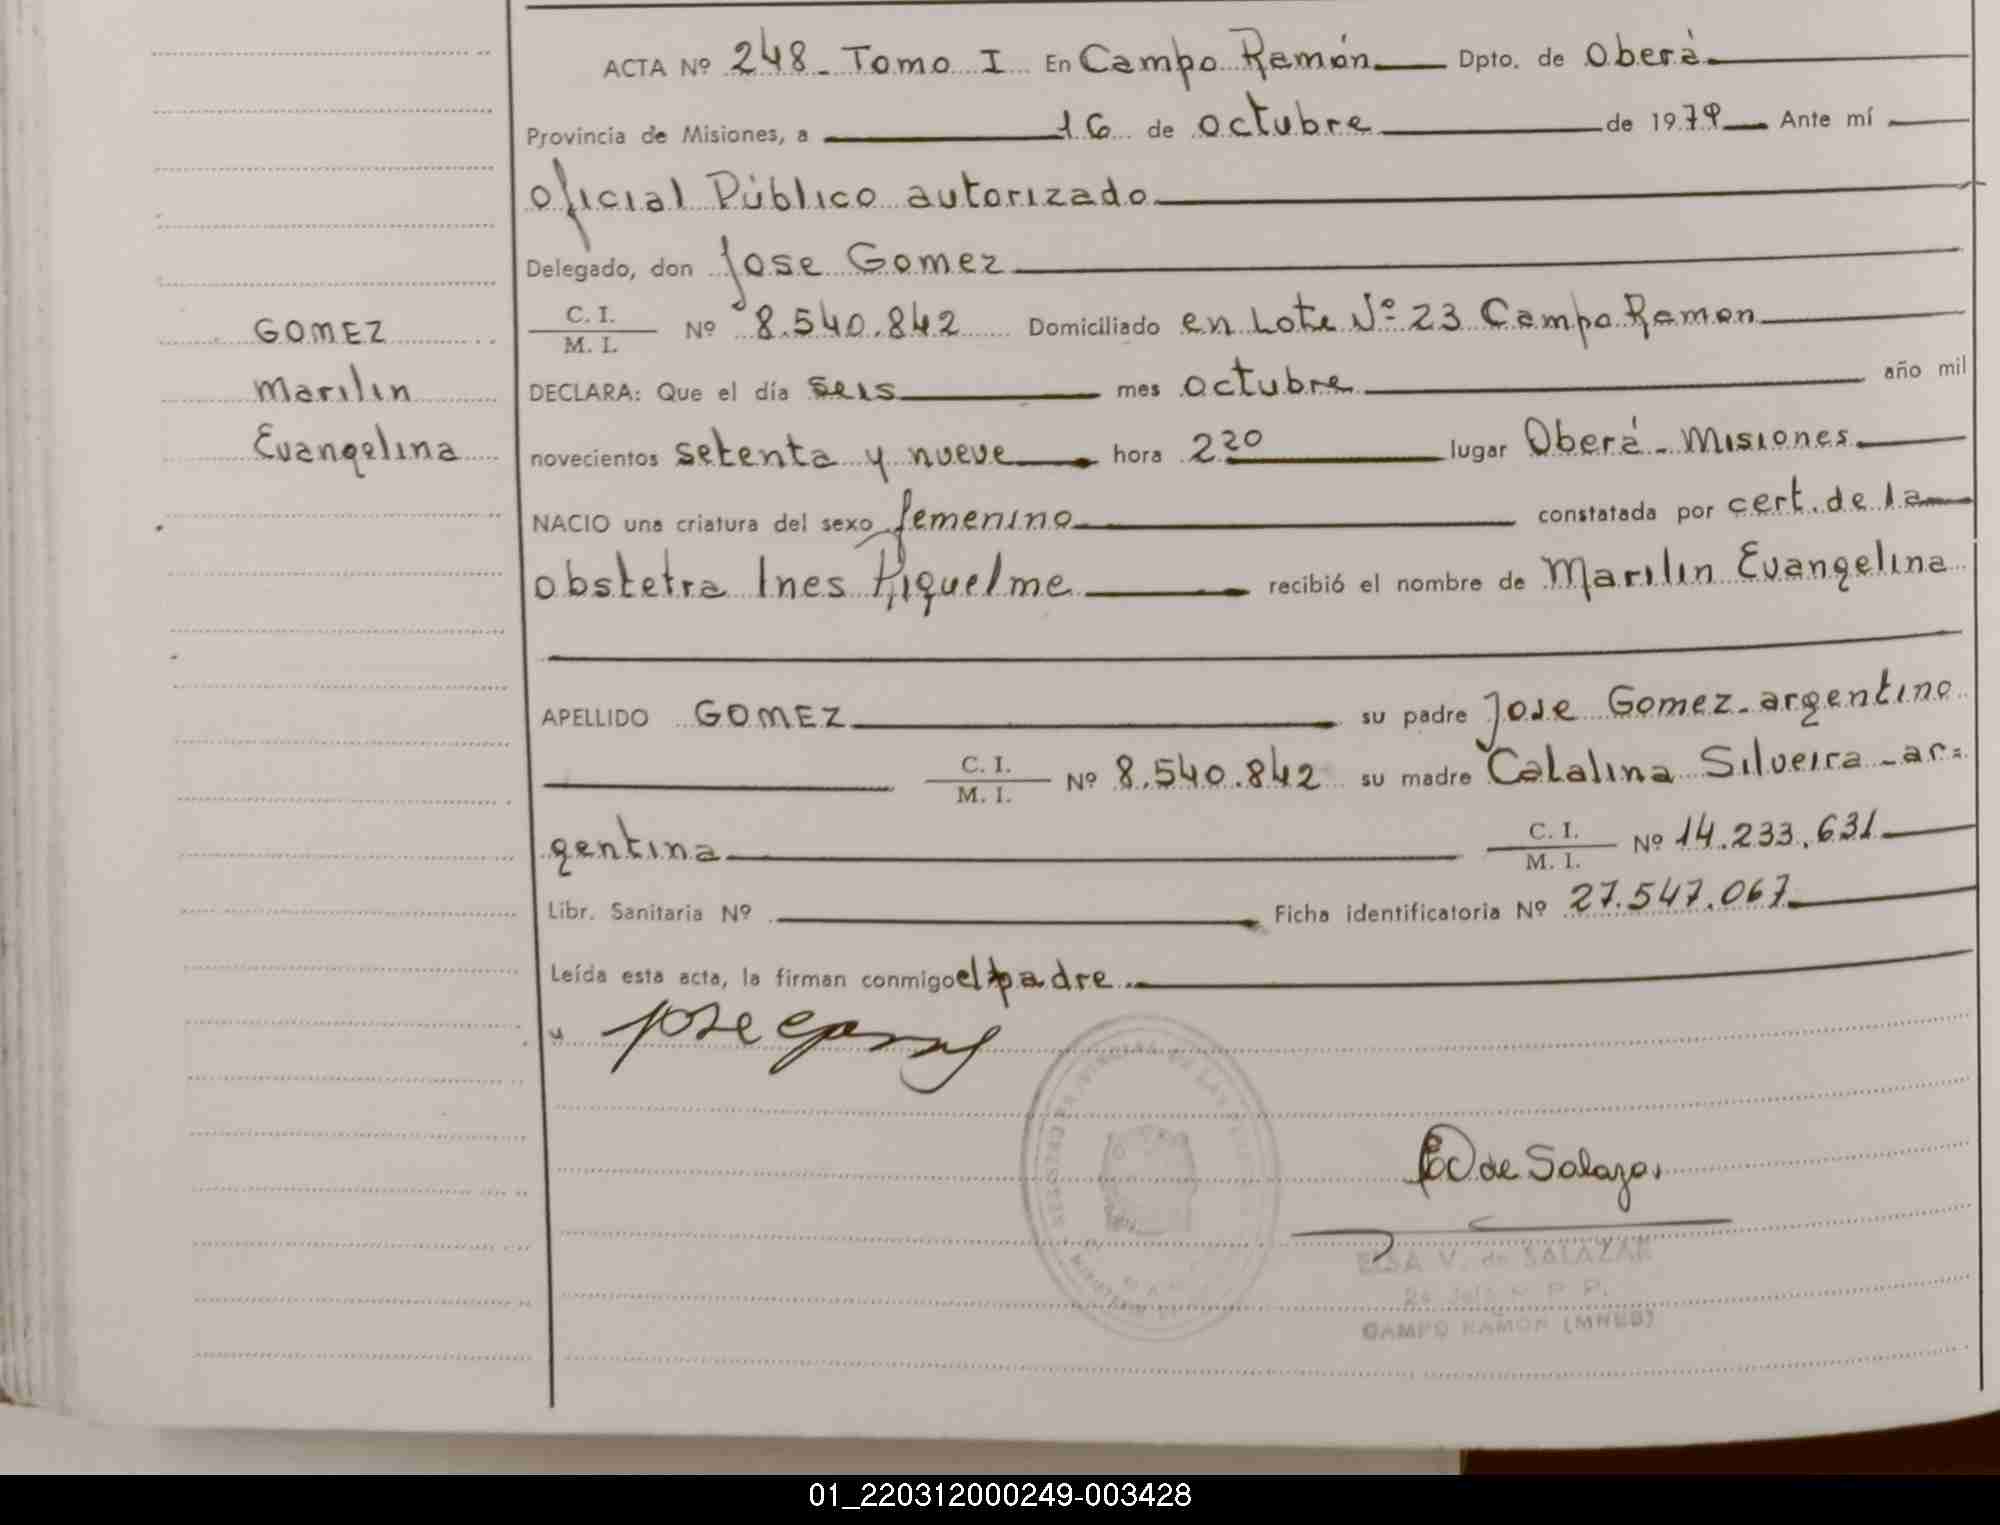 ACTA Nº 248 - Tomo I En Campo Ramón Dpto. de Oberá
Provincia de Misiones, a 16 de octubre de 1979 Ante mí
Oficial Público autorizado
Delegado, don Jose Gomez
C. I. / M. I. Nº 8.540.842 Domiciliado en Lote Nº 23 Campo Ramon
GOMEZ
Marilin
Evangelina
DECLARA: Que el día seis mes octubre año mil
novecientos setenta y nueve hora 2 20 lugar Oberá - Misiones
NACIO una criatura del sexo femenino constatada por cert. de la
obstetra Ines Riquelme recibió el nombre de Marilin Evangelina
APELLIDO GOMEZ su padre Jose Gomez - argentino
C. I. / M. I. Nº 8.540.842 su madre Catalina Silveira - ar=
gentina C. I. / M. I. Nº 14.233.631
Libr. Sanitaria Nº Ficha identificatoria Nº 27.547.067
Leída esta acta, la firman conmigo el padre
Jose Gomez
de Salazar
ELSA V. de SALAZAR
CAMPO RAMON (MNES)
REGISTRO PROVINCIAL DE LAS
01_220312000249-003428